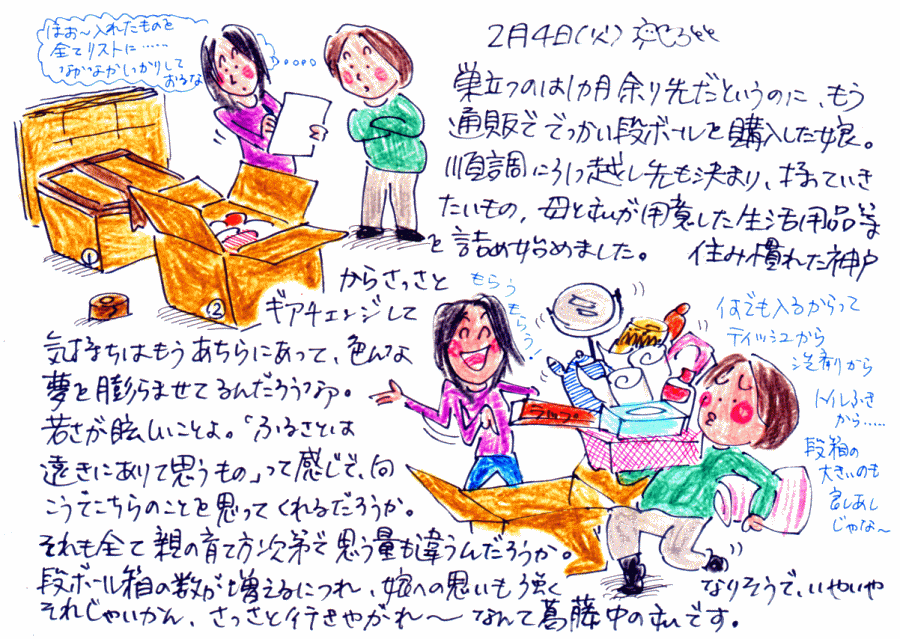 ほお〜入れたものを
全てリストに……
なかなかしっかりして
おるな
2月4日(火)
巣立つのは1か月余り先だというのに、もう
通販ででっかい段ボールを購入した娘。
順調に引っ越し先も決まり、持っていき
たいもの、母と私が用意した生活用品等
を詰め始めました。 住み慣れた神戸
からさっさと
ギアチェンジして
気持ちはもうあちらにあって、色んな
夢を膨らませてるんだろうなァ。
若さが眩しいことよ。「ふるさとは
遠きにありて思うもの」って感じで、向
こうでこちらのことを思ってくれるだろうか。
それも全て親の育て方次第で思う量も違うんだろうか。
段ボール箱の数が増えるにつれ、娘への思いも強く
なりそうで、いやいや
それじゃいかん、さっさと行きやがれ〜 なんて葛藤中の私です。
もらう
もらう!
何でも入るからって
ティッシュから
洗剤から
トイレふき
から……
段箱の
大きいのも
良しあし
じゃな〜
ラップ
①
②